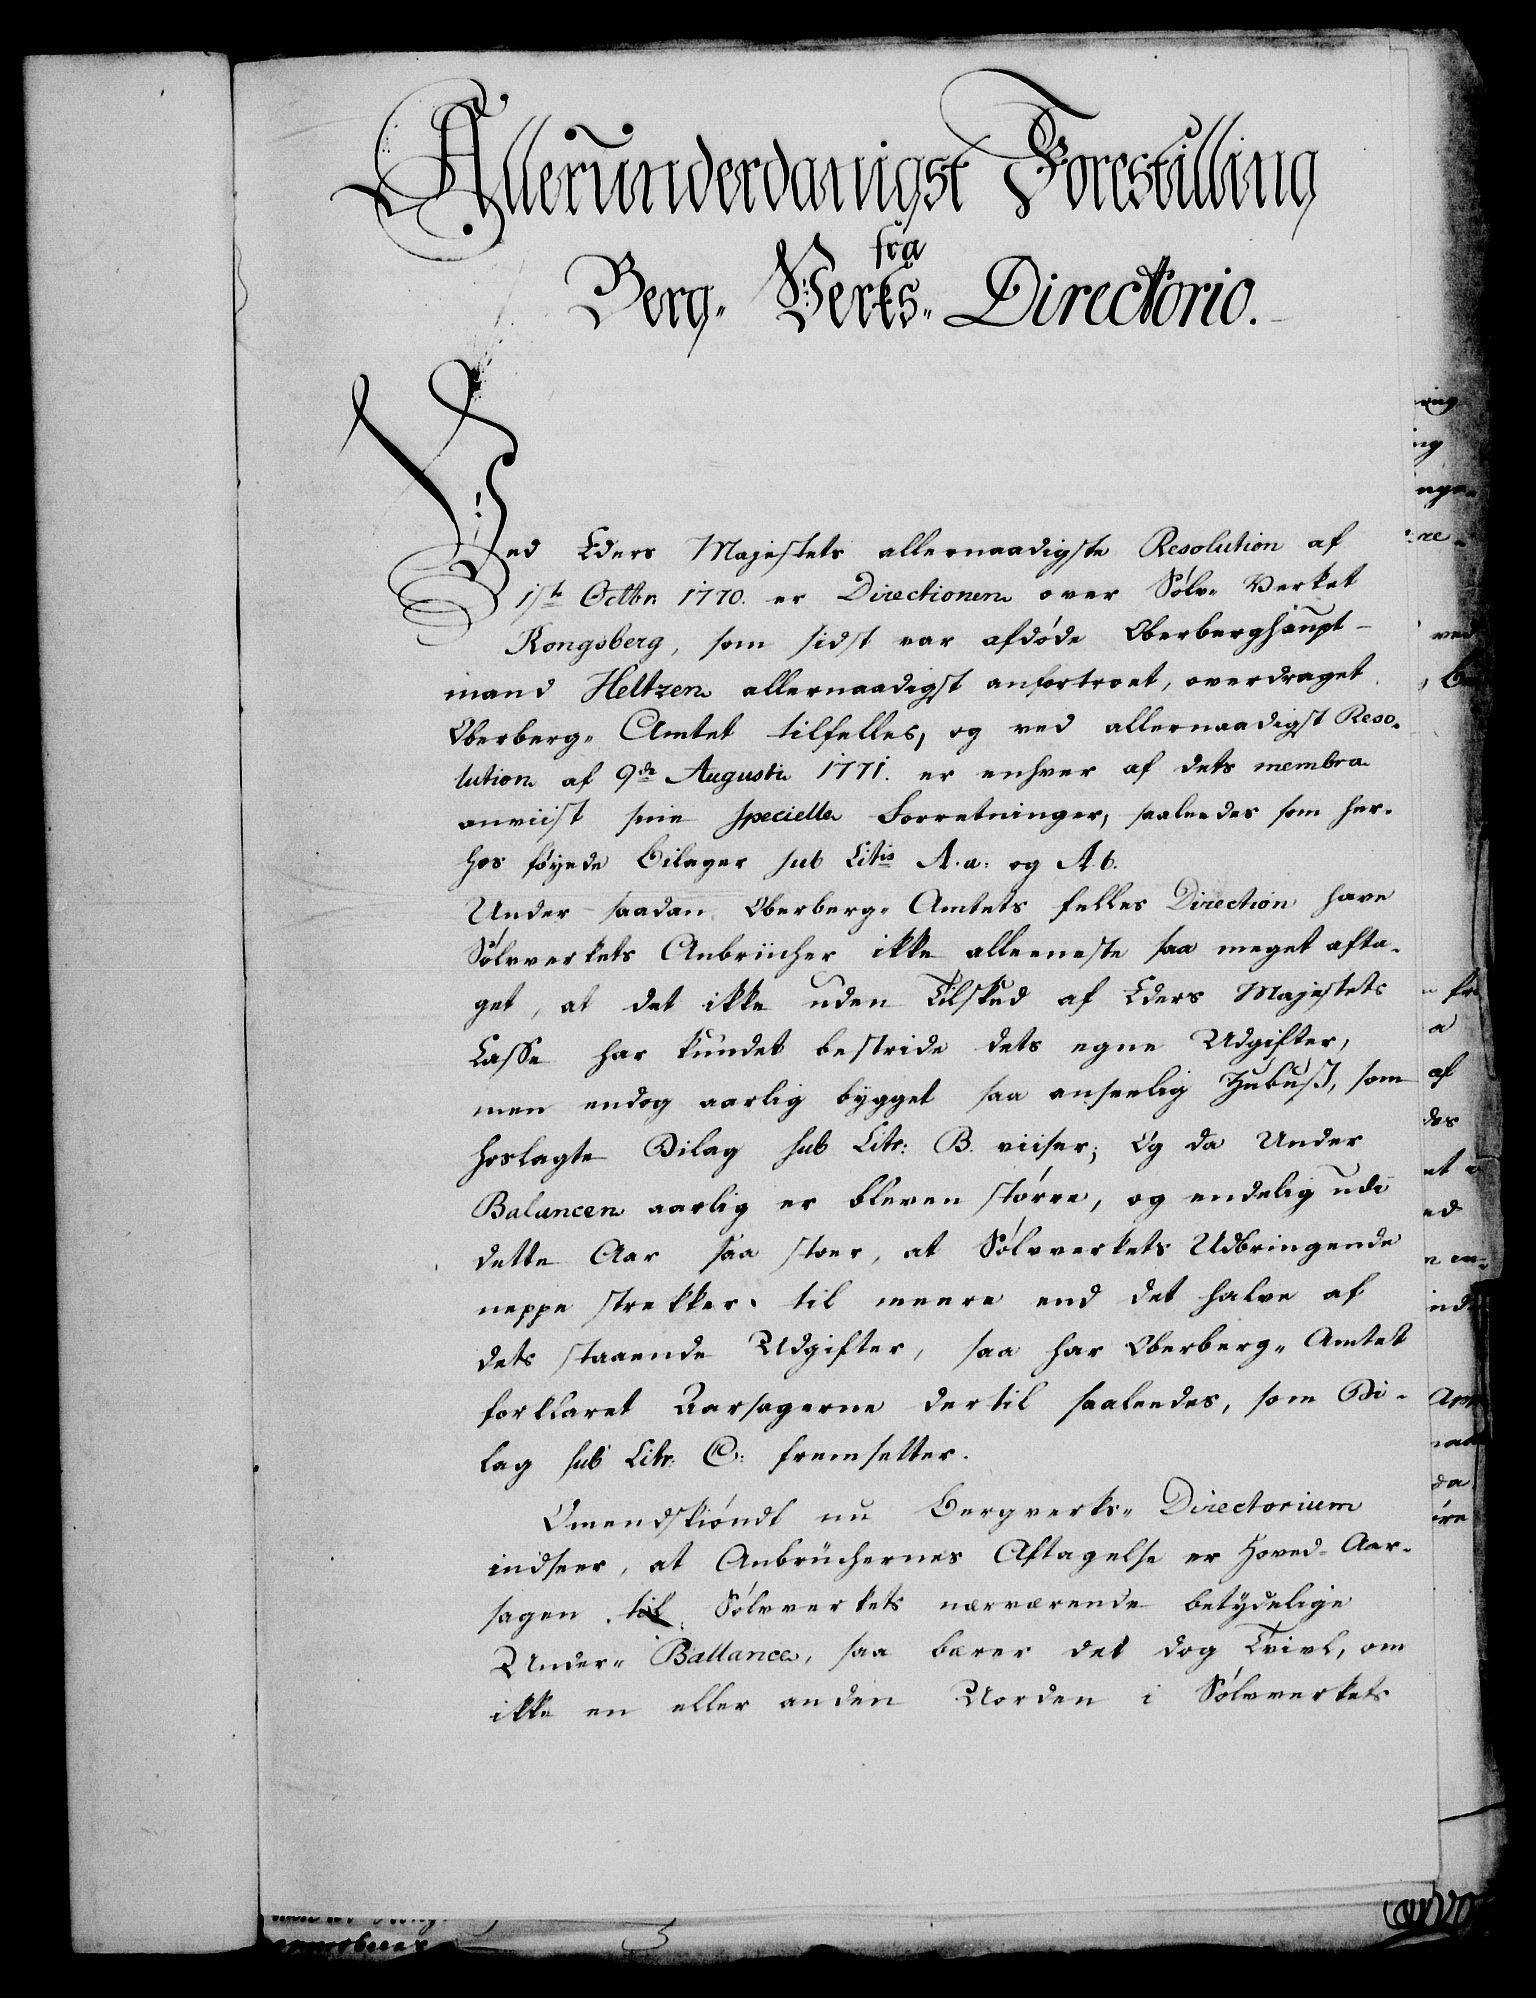 Allerunderdanigst Forestilling
fra
Berg- Verks- Directorio.
Ved Eders Majestets allernaadigste Resolution af
1ste Octbr 1770. er Directionen over Sølv- Verket
Kongsberg, som sidst var afdøde Oberberghaupt-
mand Heltzen allernaadigst anfortroet, overdraget
Oberberg- Amtet tilfelles, og ved allernaadigst Reso-
lution af 9de Augusti 1771. er enhver af dets membra
anviist sine specielle Forretninger, saaleedes som her-
hos føyede Bilager sub Litis A.a. og A.b.
Under saadan Oberberg- Amtets felles Direction have
Sølvverkets Anbrücher ikke alleeneste saa meget afta-
get, at det ikke uden Tilskud af Eders Majestets
Casse har kundet bestride dets egne Udgifter,
men endog aarlig bygget saa anseelig Zubusz, som
hoslagte Bilag sub Litr: B. viiser; Og da Under
Balancen aarlig er bleven større, og endelig udi
dette Aar saa stor, at Sølvverkets Udbringende
neppe strekker til meere end det halve af
dets staaende Udgifter, saa har Oberberg- Amtet
forklaret Aarsagerne dertil saaleedes, som Bi-
lag sub Litr: C: fremsetter.
Omendskiøndt nu Bergverks- Directorium
indseer, at Anbrüchernes Aftagelse er Hoved- Aar-
sagen til Sølvverkets nærværende betydelige
Under- Ballance, saa bærer det dog Tvivl, om
ikke en eller anden Uorden i Sølvverkets